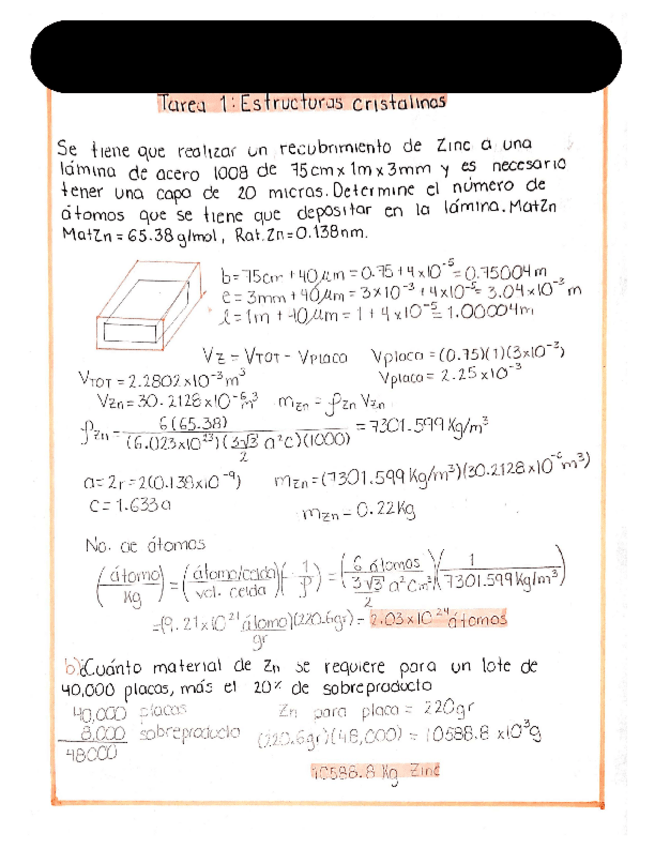 Tarea 1: Estructuras cristalinas
Se tiene que realizar un recubrimiento de Zinc a una
lámina de acero 1008 de 75cm x 1m x 3mm y es necesario
tener una capa de 20 micras. Determine el número de
átomos que se tiene que depositar en la lámina. MatZn
MatZn = 65.38 g/mol, Rat.Zn = 0.138nm.
b = 75cm + 40μm = 0.75 + 4x10⁻⁵ = 0.75004 m
e = 3mm + 40μm = 3x10⁻³ + 4x10⁻⁵ = 3.04x10⁻³ m
l = 1m + 40μm = 1 + 4x10⁻⁵ = 1.00004m
Vz = VTOT - Vplaca Vplaca = (0.75)(1)(3x10⁻³)
VTOT = 2.2802x10⁻³m³ Vplaca = 2.25x10⁻³
VZn = 30.2128x10⁻⁶m³ mZn = ρZn VZn
ρZn = 6(65.38) / (6.023x10²³)(3√3/2 a²c)(1000) = 7301.599 Kg/m³
a = 2r = 2(0.138x10⁻⁹) mZn = (7301.599 Kg/m³)(30.2128x10⁻⁶m³)
c = 1.633a mZn = 0.22Kg
No. de átomos
(átomo/Kg) = (átomo/celda / vol. celda)(1/ρ) = (6 átomos / 3√3/2 a²c m³)(1 / 7301.599Kg/m³)
= (9.21x10²¹ átomo/gr)(220.6gr) = 2.03x10²⁴ átomos
b) ¿Cuánto material de Zn se requiere para un lote de
40,000 placas, más el 20% de sobreproducto
40,000 placas Zn para placa = 220gr
8,000 sobreproducto (220.6gr)(48,000) = 10588.8 x10³g
48000
10588.8 Kg Zinc